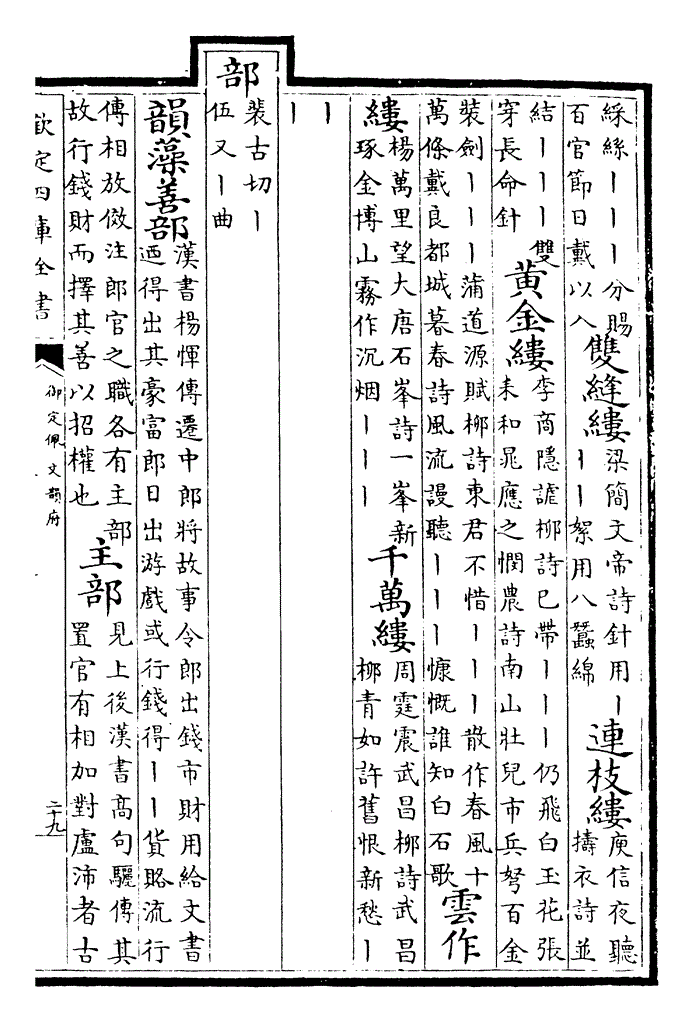 綵絲丨丨丨分賜
百官節日戴以入
雙縫縷
梁簡文帝詩針用丨
丨丨絮用八蠶綿
連枝縷
庾信夜聽
擣衣詩並
結丨丨丨雙
穿長命針
黄金縷
李商隱謔柳詩已帶丨丨丨仍飛白玉花張
耒和晁應之憫農詩南山壯兒市兵弩百金
裝劍丨丨丨蒲道源賦柳詩東君不惜丨丨丨散作春風十
萬條戴良都城暮春詩風流謾聽丨丨丨慷慨誰知白石歌
雲作
縷
楊萬里望大唐石峯詩一峯新
琢金博山霧作沉烟丨丨丨
千萬縷
周霆震武昌柳詩武昌
柳青如許舊恨新愁丨
丨
丨
部
裴古切丨
伍又丨曲
韻藻善部
漢書楊惲傳遷中郎將故事令郎出錢市財用給文書
迺得出其豪富郎日出游戲或行錢得丨丨貨賂流行
傳相放傚注郎官之職各有主部
故行錢財而擇其善以招權也
主部
見上後漢書高句驪傳其
置官有相加對盧沛者古
欽定四庫全書
御定佩文韻府
二十九